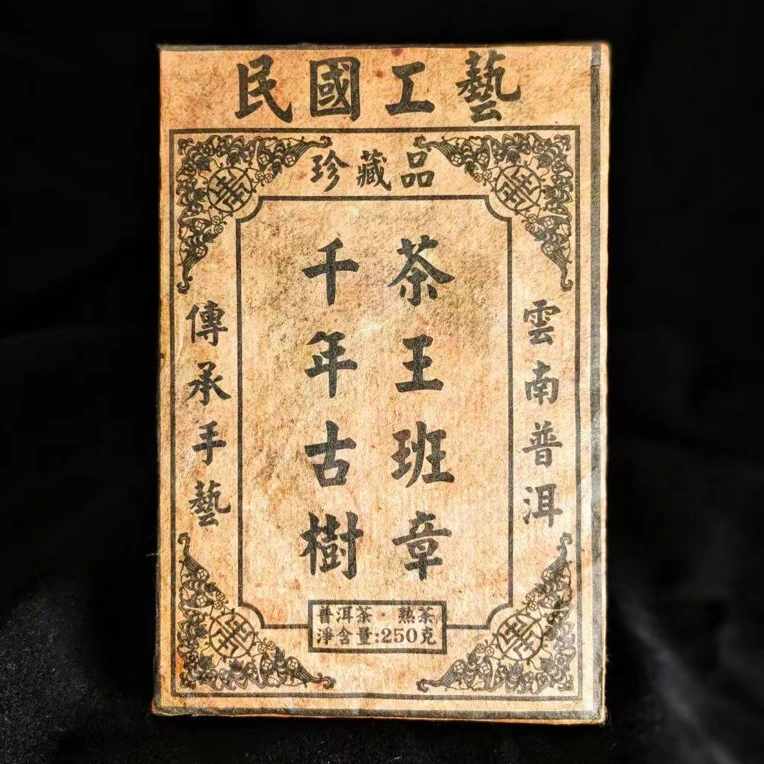 民國工藝
珍藏品
茶王班章
千年古樹
雲南普洱
傳承手藝
普洱茶·熟茶
淨含量:250克